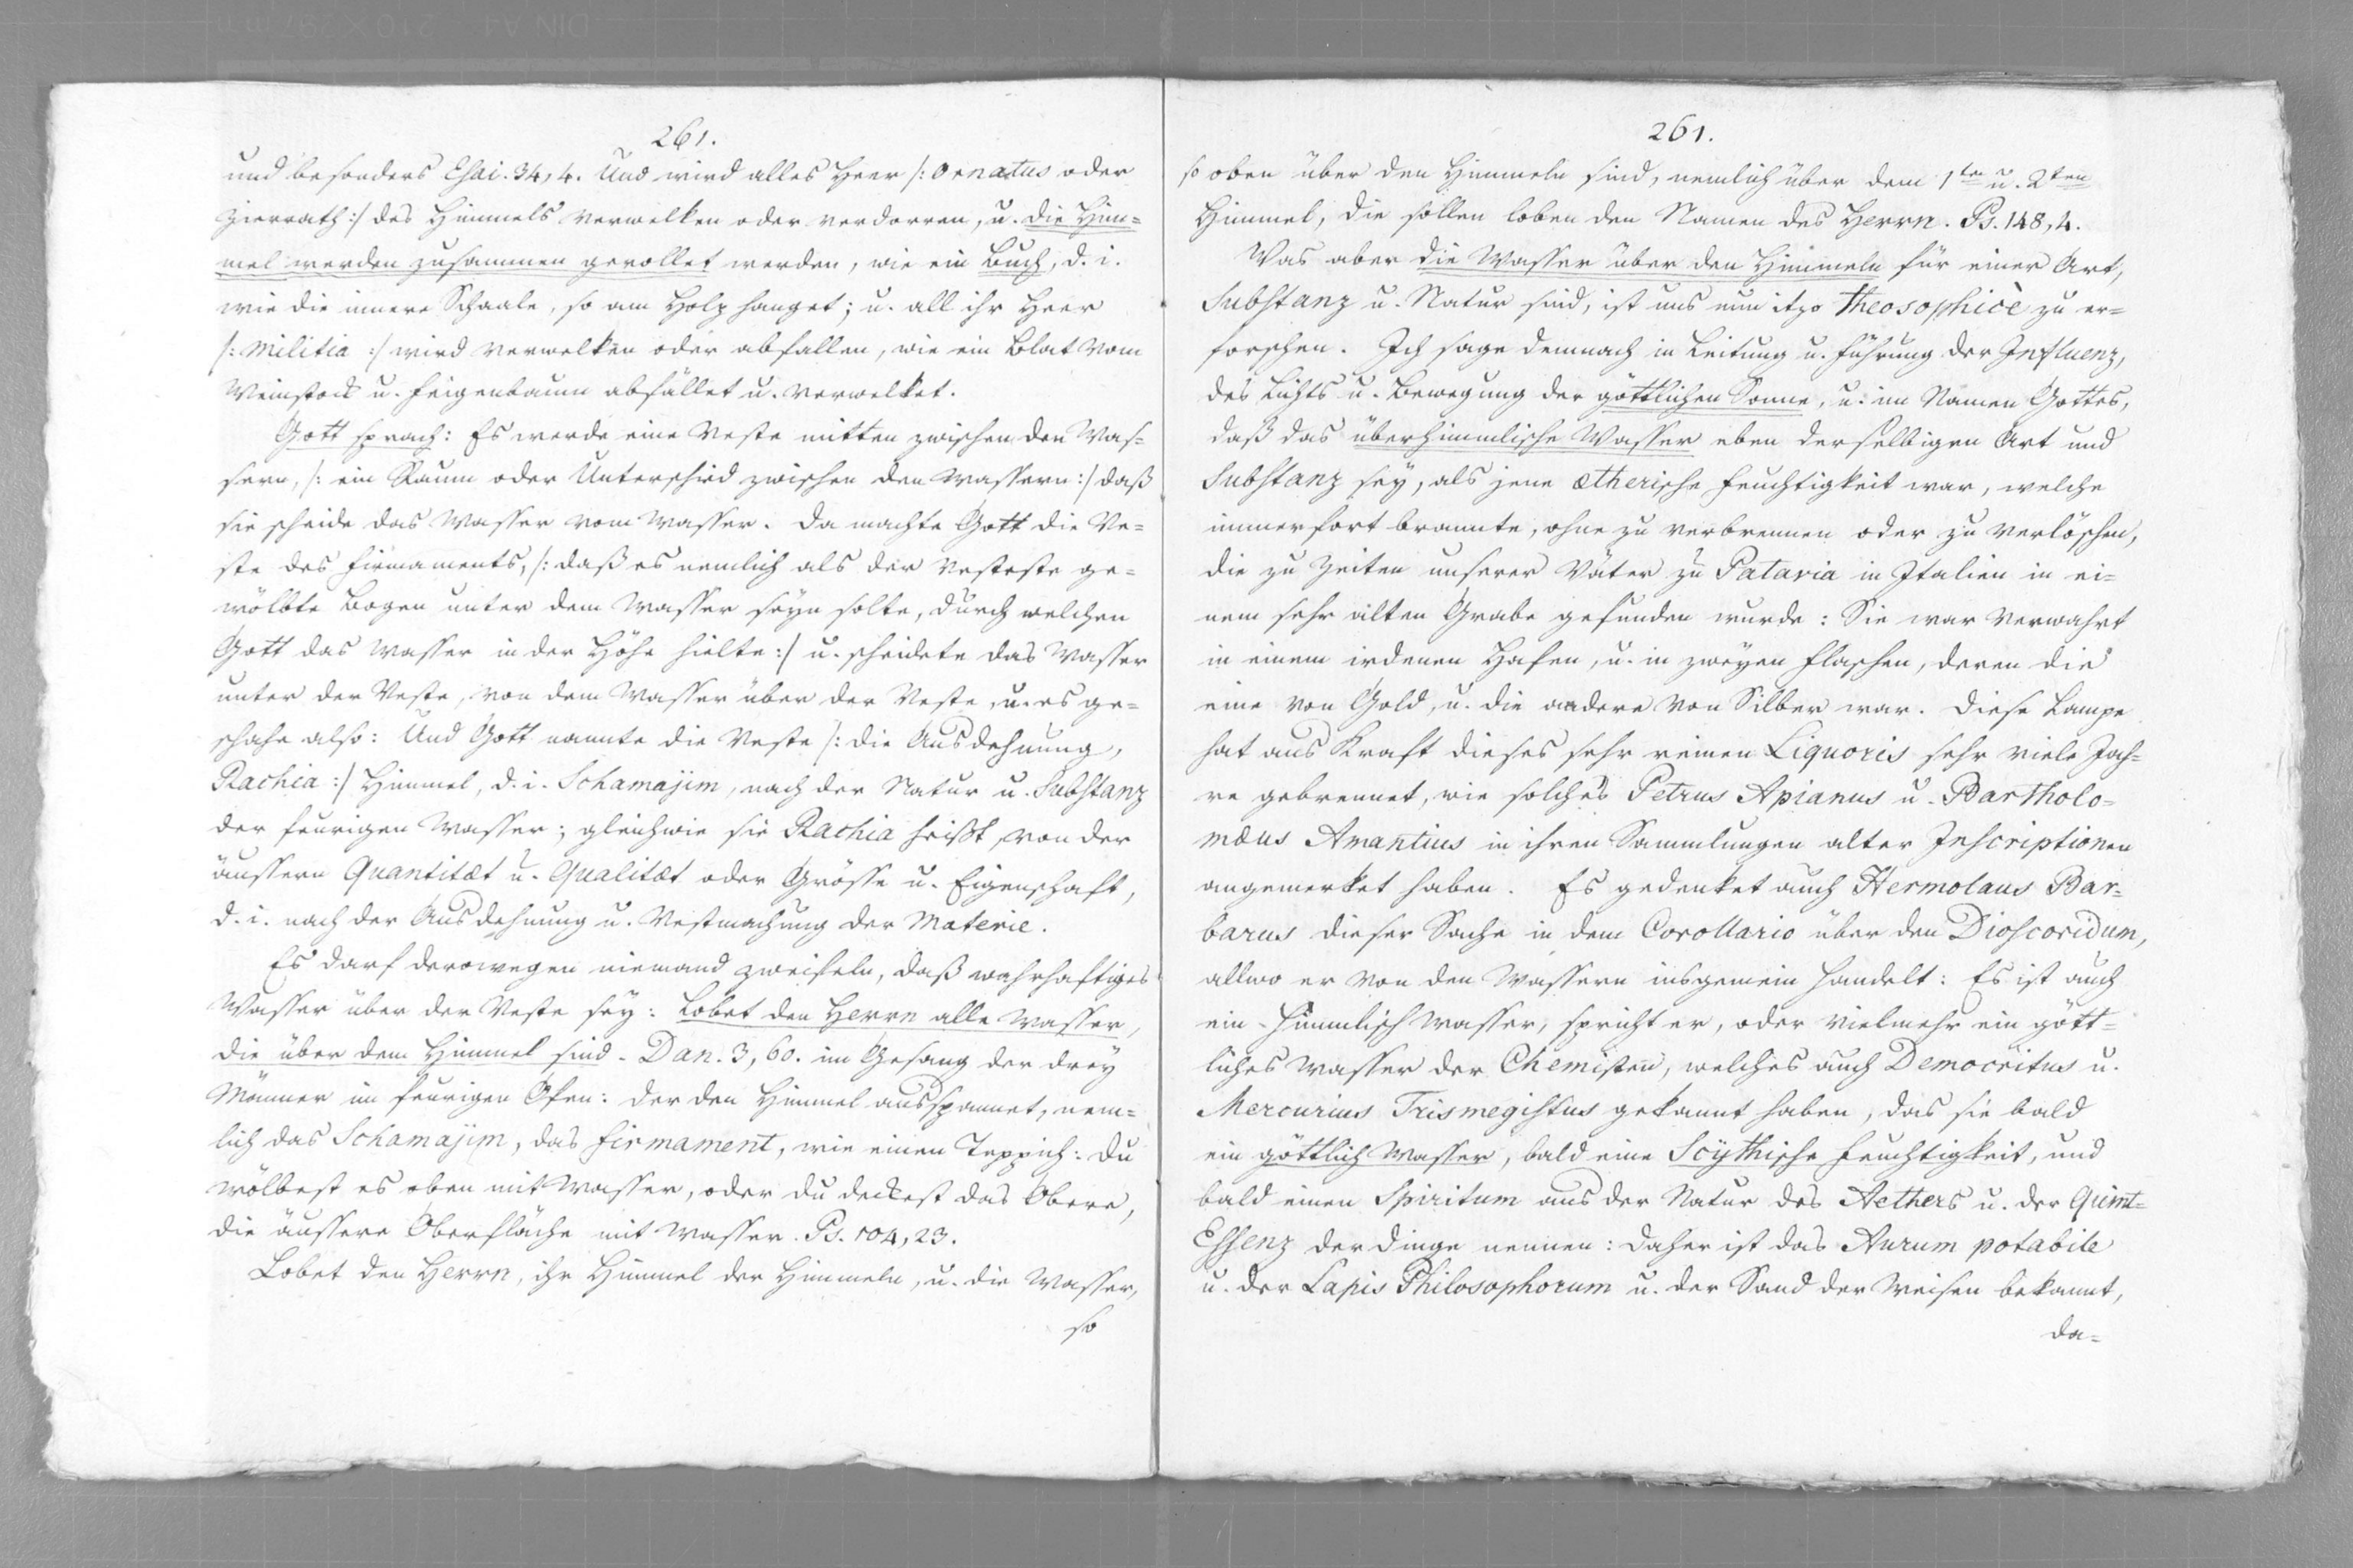 261.
und besonders Esai. 34, 4. Und wird alles Heer /: ornatus oder
Zierrath :/ des Himmels verwelken oder verdorren, u. die Him=
mel werden zusammen gerollet werden, wie ein Buch, d. i.
wie die innere Schaale, so am Holz hanget; u. all ihr Heer
/: Militia :/ wird verwelken oder abfallen, wie ein Blat vom
Weinstock u. Feigenbaum abfället u. verwelket.
Gott sprach: Es werde eine Veste mitten zwischen den Was=
sern, /: ein Raum oder Unterschied zwischen den Wassern :/ daß
sie scheide das Wasser vom Wasser. Da machte Gott die Ve=
ste des Firmaments, /: daß es nemlich als der Vesteste ge=
wölbte Bogen unter dem Wasser seyn solte, durch welchen
Gott das Wasser in der Höhe hielte :/ u. scheidete das Wasser
unter der Veste, von dem Wasser über der Veste, u. es ge=
schahe also: Und Gott nannte die Veste /: die Ausdehnung,
Rachia :/ Himmel, d. i. Schamajim, nach der Natur u. Substanz
der feurigen Wasser; gleichwie sie Rachia heißt, von der
äussern Quantitæt u. Qualitæt oder Grösse u. Eigenschaft,
d. i. nach der Ausdehnung u. Vestmachung der Materie.
Es darf derowegen niemand zweifeln, daß wahrhaftiges
Wasser über der Veste sey: Lobet den Herrn alle Wasser,
die über dem Himmel sind. Dan. 3, 60. im Gesang der drey
Männer im feurigen Ofen: Der den Himmel ausspannet, nem=
lich das Schamajim, das Firmament, wie einen Teppich: Du
wölbest es oben mit Wasser, oder du deckest das Obere,
die äussere Oberfläche mit Wasser. Ps. 104, 23.
Lobet den Herrn, ihr Himmel der Himmeln, u. die Wasser,
so
261.
so oben über den Himmeln sind, nemlich über dem 1ten u. 2ten
Himmel, die sollen loben den Namen des Herrn. Ps. 148, 4.
Was aber die Wasser über den Himmeln für einer Art,
Substanz u. Natur sind, ist uns nun itzo theosophicè zu er=
forschen. Ich sage demnach in Leitung u. Führung der Influenz,
des Lichts u. Bewegung der göttlichen Sonne, u. im Namen Gottes,
daß das überhimmlische Wasser eben derselbigen Art und
Substanz sey, als jene ætherische Feuchtigkeit war, welche
immerfort brannte, ohne zu verbrennen oder zu verlöschen,
die zu Zeiten unserer Väter zu Patavia in Italien in ei=
nem sehr alten Grabe gefunden wurde: Sie war verwahrt
in einem irdenen Hafen, u. in zweyen Flaschen, deren die
eine von Gold, u. die andere von Silber war. Diese Lampe
hat aus Kraft dieses sehr reinen Liquoris sehr viele Jah=
re gebrennet, wie solches Petrus Apianus u. Bartholo=
mæus Amantius in ihren Sammlungen alter Inscriptionen
angemerket haben. Es gedenket auch Hermolaus Bar=
barus dieser Sache in dem Corollario über den Dioscoridum,
allwo er von den Wassern insgemein handelt: Es ist auch
ein himmlisch Wasser, spricht er, oder vielmehr ein gött=
liches Wasser der Chemisten, welches auch Democritus u.
Mercurius Trismegistus gekannt haben, das sie bald
ein göttlich Wasser, bald eine Scythische Feuchtigkeit, und
bald einen Spiritum aus der Natur des Aethers u. der Quint=
Essenz der Dinge nennen: Daher ist das Aurum potabile
u. der Lapis Philosophorum u. der Sand der Weisen bekannt,
da=